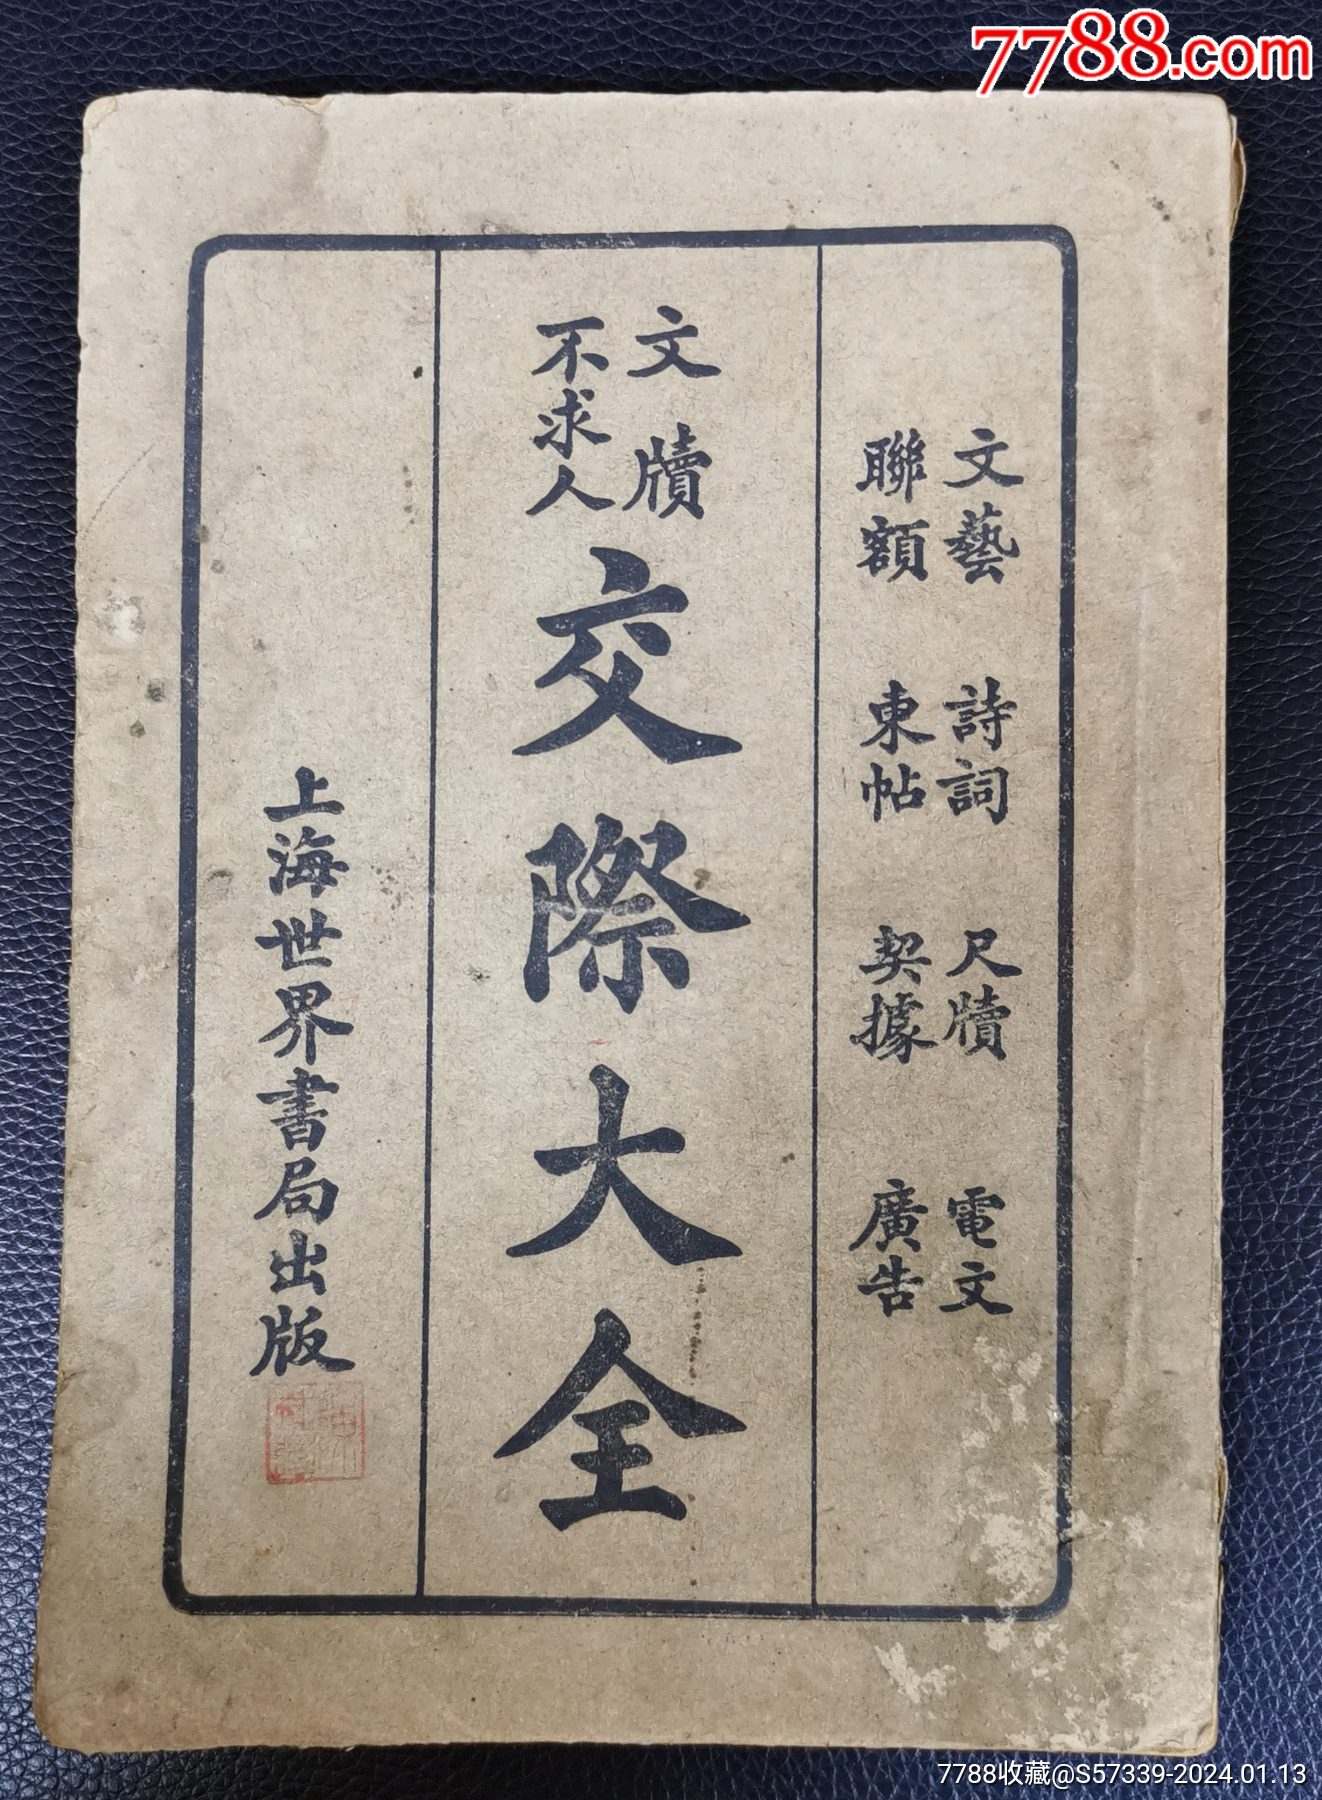 7788.com
文藝 詩詞 尺牘 電文
聯額 柬帖 契據 廣告
文牘
不求人
交際大全
上海世界書局出版
7788收藏@S57339-2024.01.13